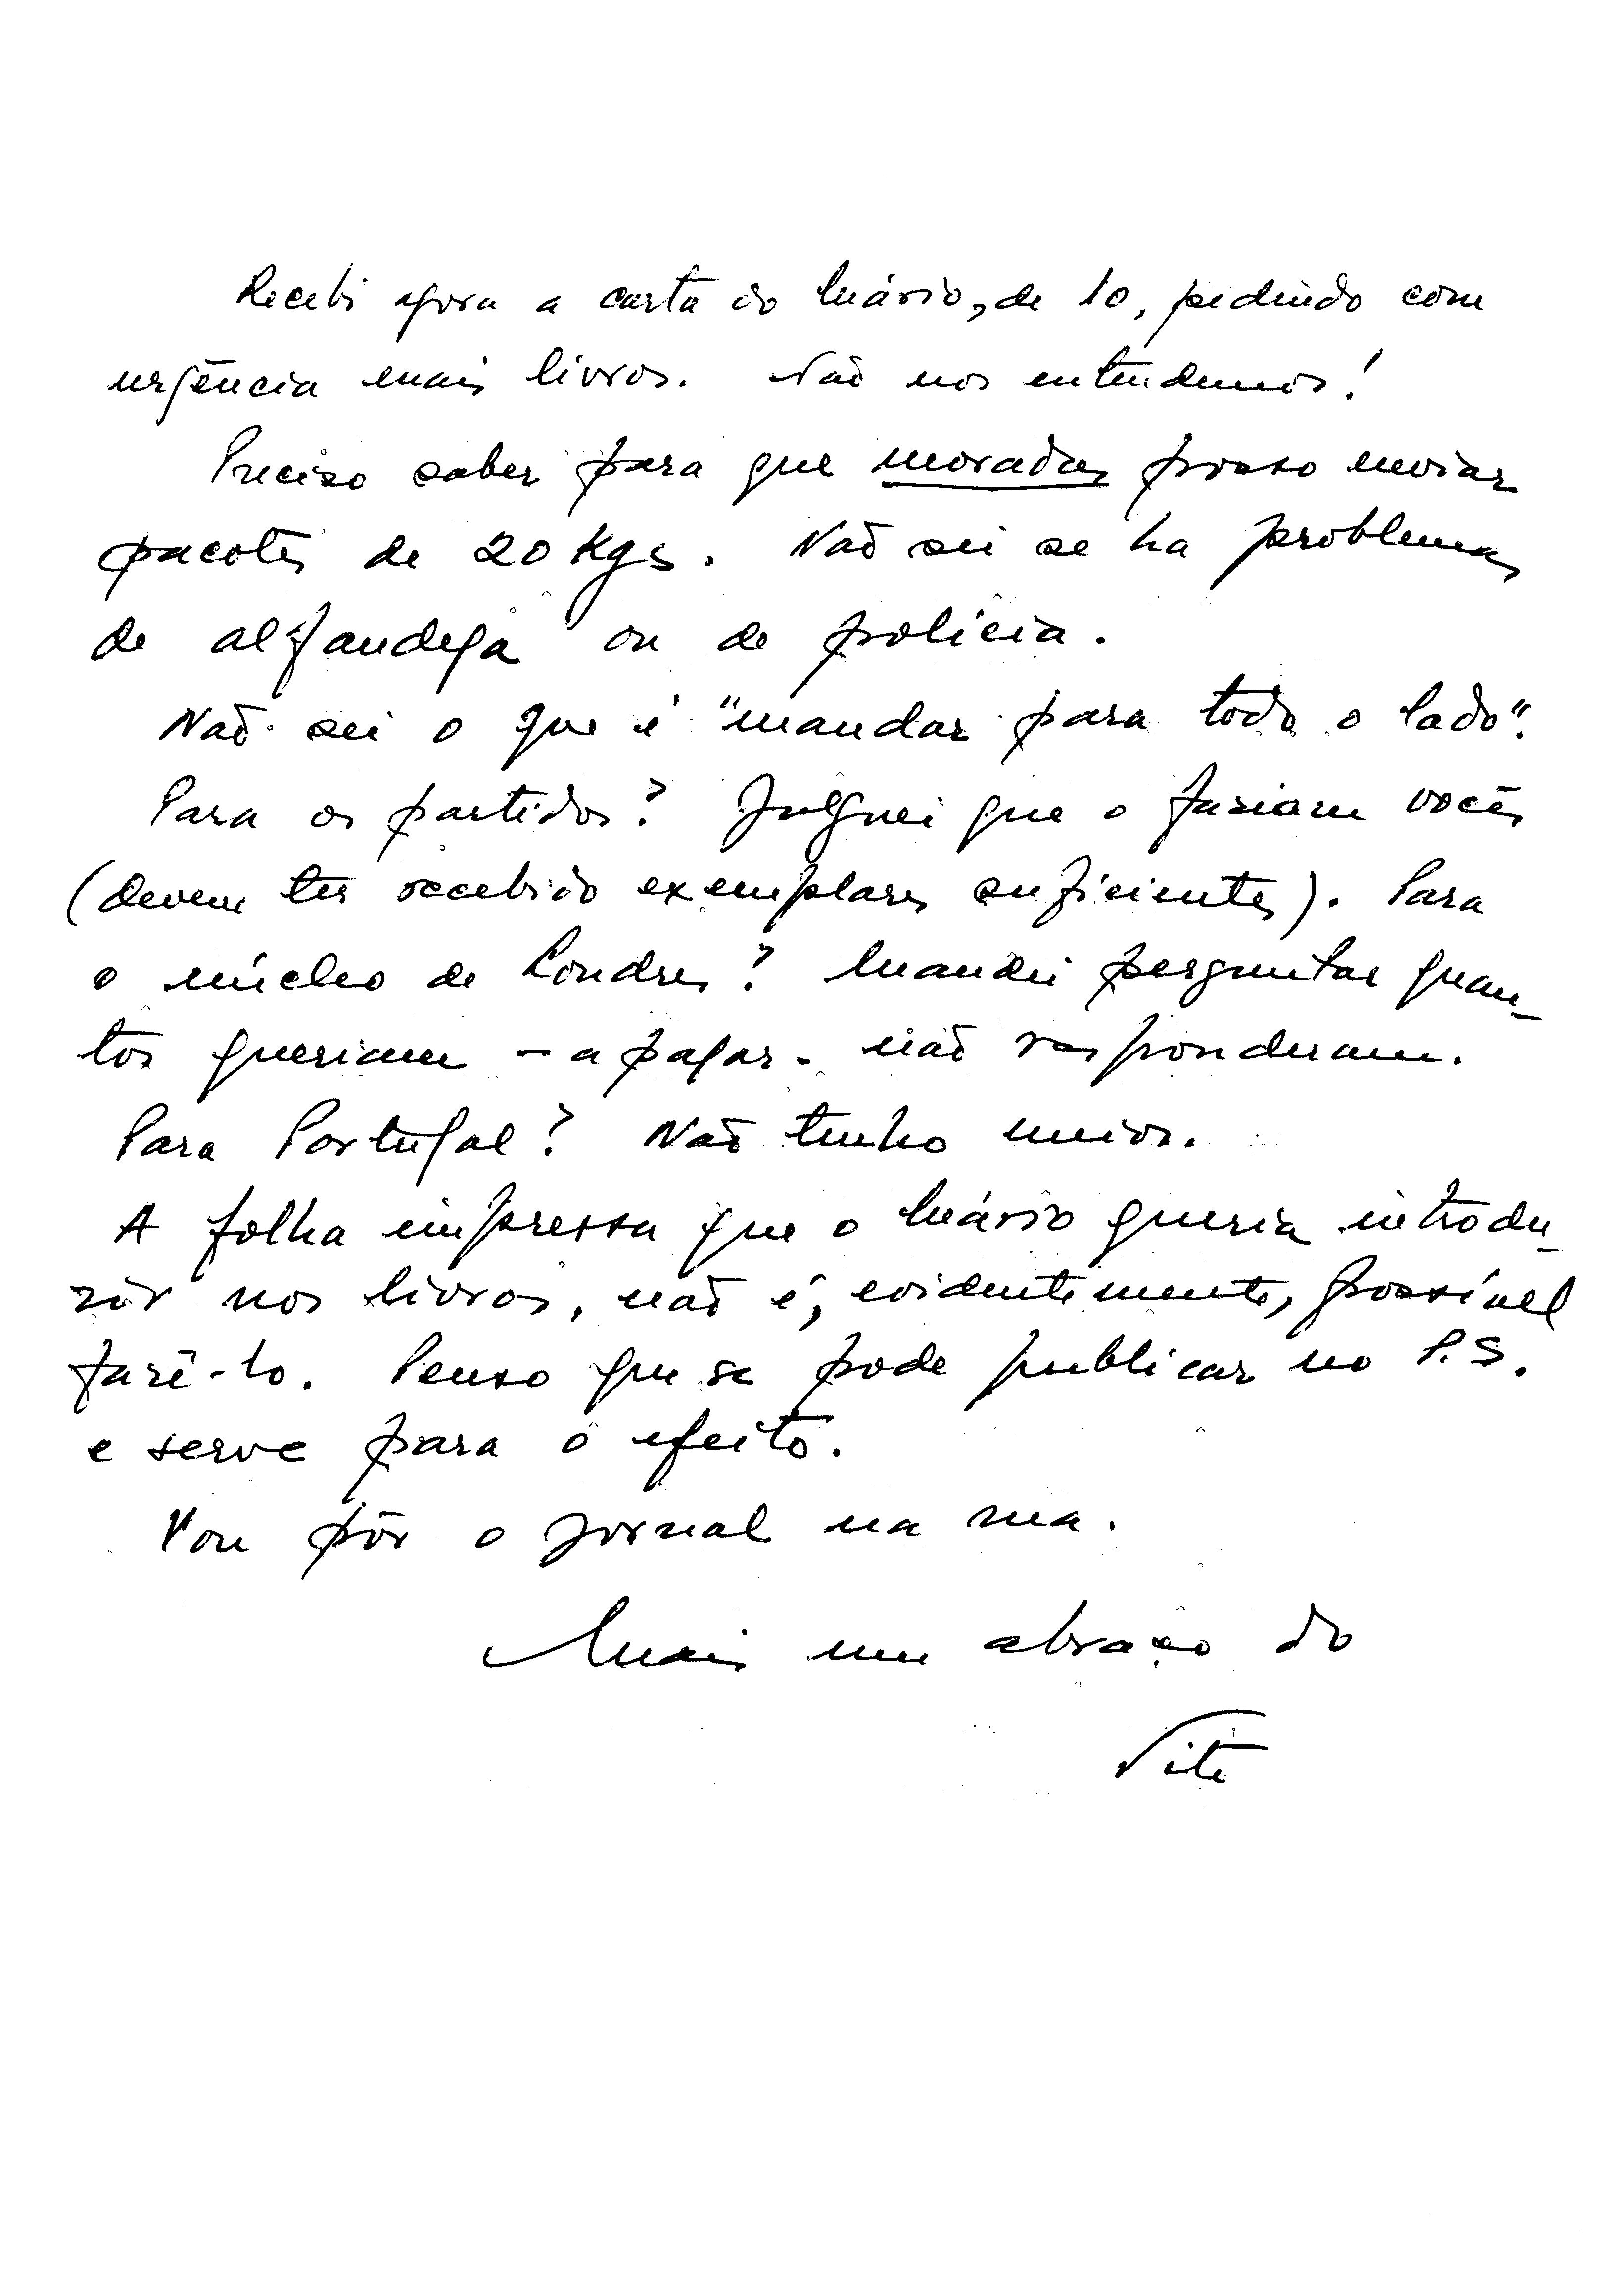 Recebi agora a carta do Mário, de 10, pedindo com
urgência mais livros. Não nos entendemos!
Preciso saber para que moradas posso enviar
pacotes de 20 Kgs. Não sei se ha problemas
de alfandega ou de policia.
Não sei o que é "mandar para todo o lado".
Para os partidos? Julguei que o fariam vocês
(devem ter recebido exemplares suficientes). Para
o núcleo de Londres? Mandei perguntar quan-
tos queriam - a pagar - não responderam.
Para Portugal? Não tenho meios.
A folha impressa que o Mário queria introdu-
zir nos livros, não é, evidentemente, possível
fazê-lo. Penso que se pode publicar no P.S.
e serve para o efeito.
Vou pôr o jornal na rua.
Mais um abraço do